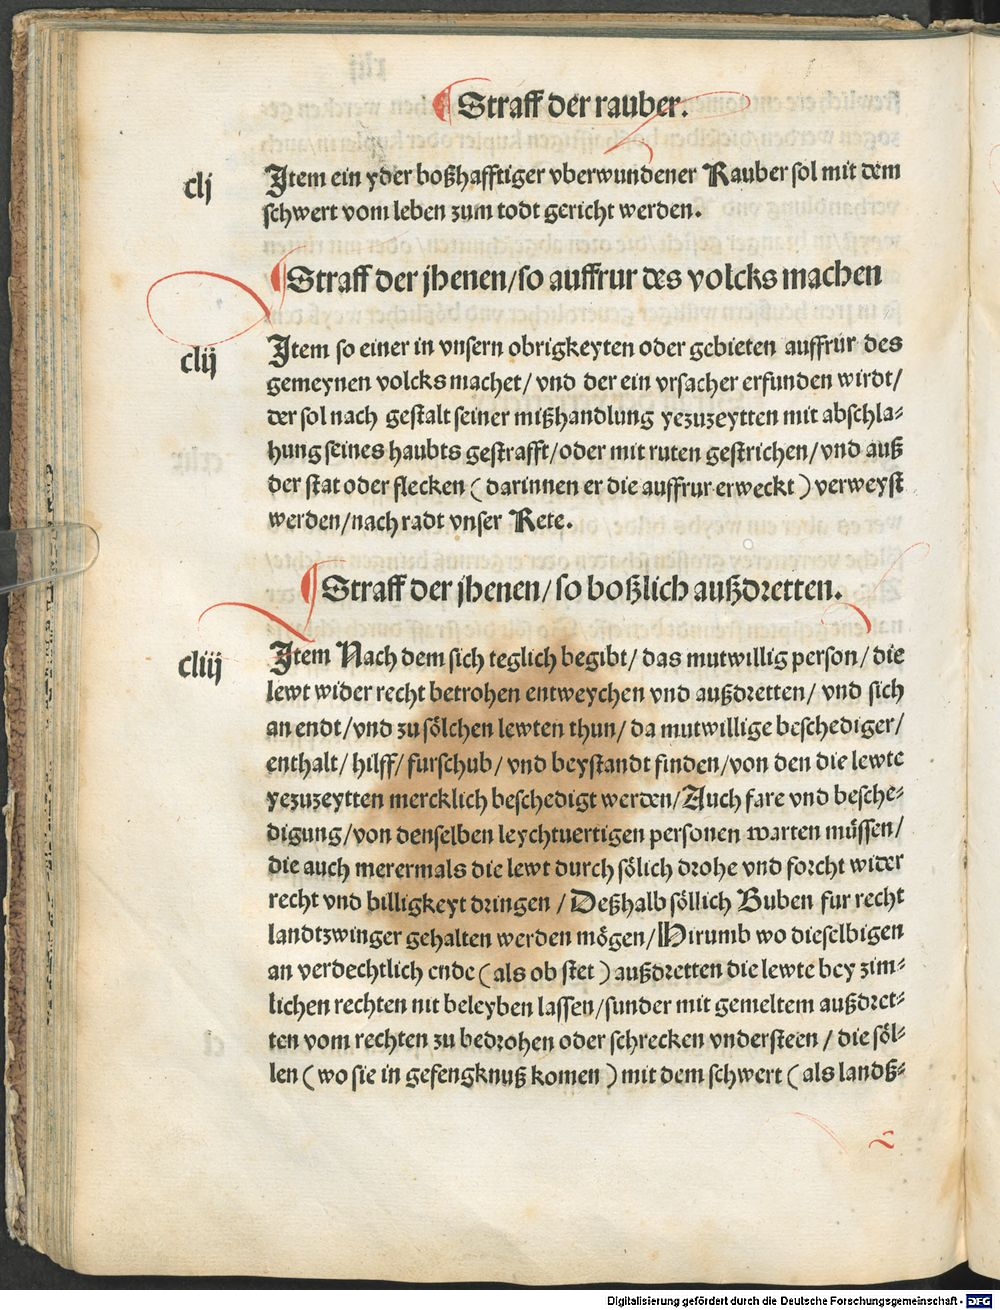 Straff der rauber.
clj
Item ein yder boßhafftiger vberwundener Rauber sol mit dem
schwert vom leben zum todt gericht werden.
Straff der jhenen/so auffrur des volcks machen
clij
Item so einer in vnsern obrigkeyten oder gebieten auffrur des
gemeynen volcks machet/ vnd der ein vrsacher erfunden wirdt/
der sol nach gestalt seiner mißhandlung yezuzeytten mit abschla⸗
hung seines haubts gestrafft/oder mit ruten gestrichen/vnd auß
der stat oder flecken (darinnen er die auffrur erweckt) verweyst
werden/nach radt vnser Rete.
Straff der jhenen/ so boßlich außdretten.
cliij
Item Nach dem sich teglich begibt/ das mutwillig person/ die
lewt wider recht betrohen entweychen vnd außdretten/ vnd sich
an endt/vnd zu sölchen lewten thun/ da mutwillige beschediger/
enthalt/ hilff/ furschub/ vnd beystandt finden/von den die lewte
yezuzeytten mercklich beschedigt werden/Auch fare vnd besche⸗
digung/von denselben leychtuertigen personen warten müssen/
die auch merermals die lewt durch sölich drohe vnd forcht wider
recht vnd billigkeyt dringen /Deßhalb söllich Buben fur recht
landtzwinger gehalten werden mögen/Hirumb wo dieselbigen
an verdechtlich ende (als ob stet) außdretten die lewte bey zim⸗
lichen rechten nit beleyben lassen/sunder mit gemeltem außdret⸗
ten vom rechten zu bedrohen oder schrecken vndersteen / die söl⸗
len (wo sie in gefengknuß komen) mit dem schwert (als landß⸗
Digitalisierung gefördert durch die Deutsche Forschungsgemeinschaft - DFG